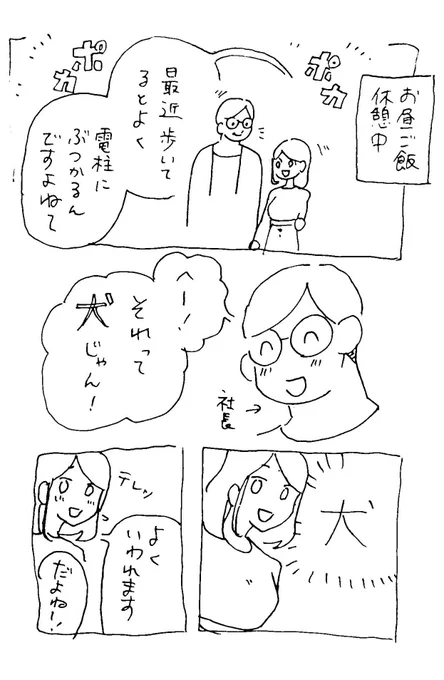 お昼ご飯
休憩中
ポカ
ポカ
最近歩いて
るとよく
電柱に
ぶつかるん
ですよねて
へー！
それって
犬じゃん！
社長
犬
テレッ
よく
いわれます
だよね！！